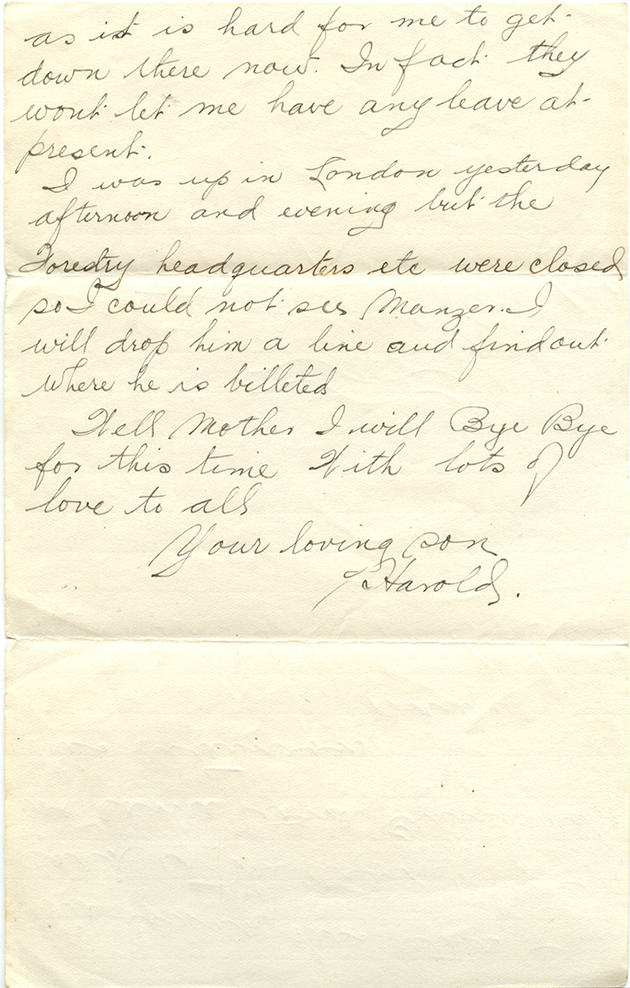 as it is hard for me to get
down there now. In fact they
wont let me have any leave at
present.
I was up in London yesterday
afternoon and evening but the
Forestry headquarters etc were closed
so I could not see Manzer. I
will drop him a line and find out
where he is billeted
Well Mother I will Bye Bye
for this time With lots of
love to all
Your loving son
Harold.